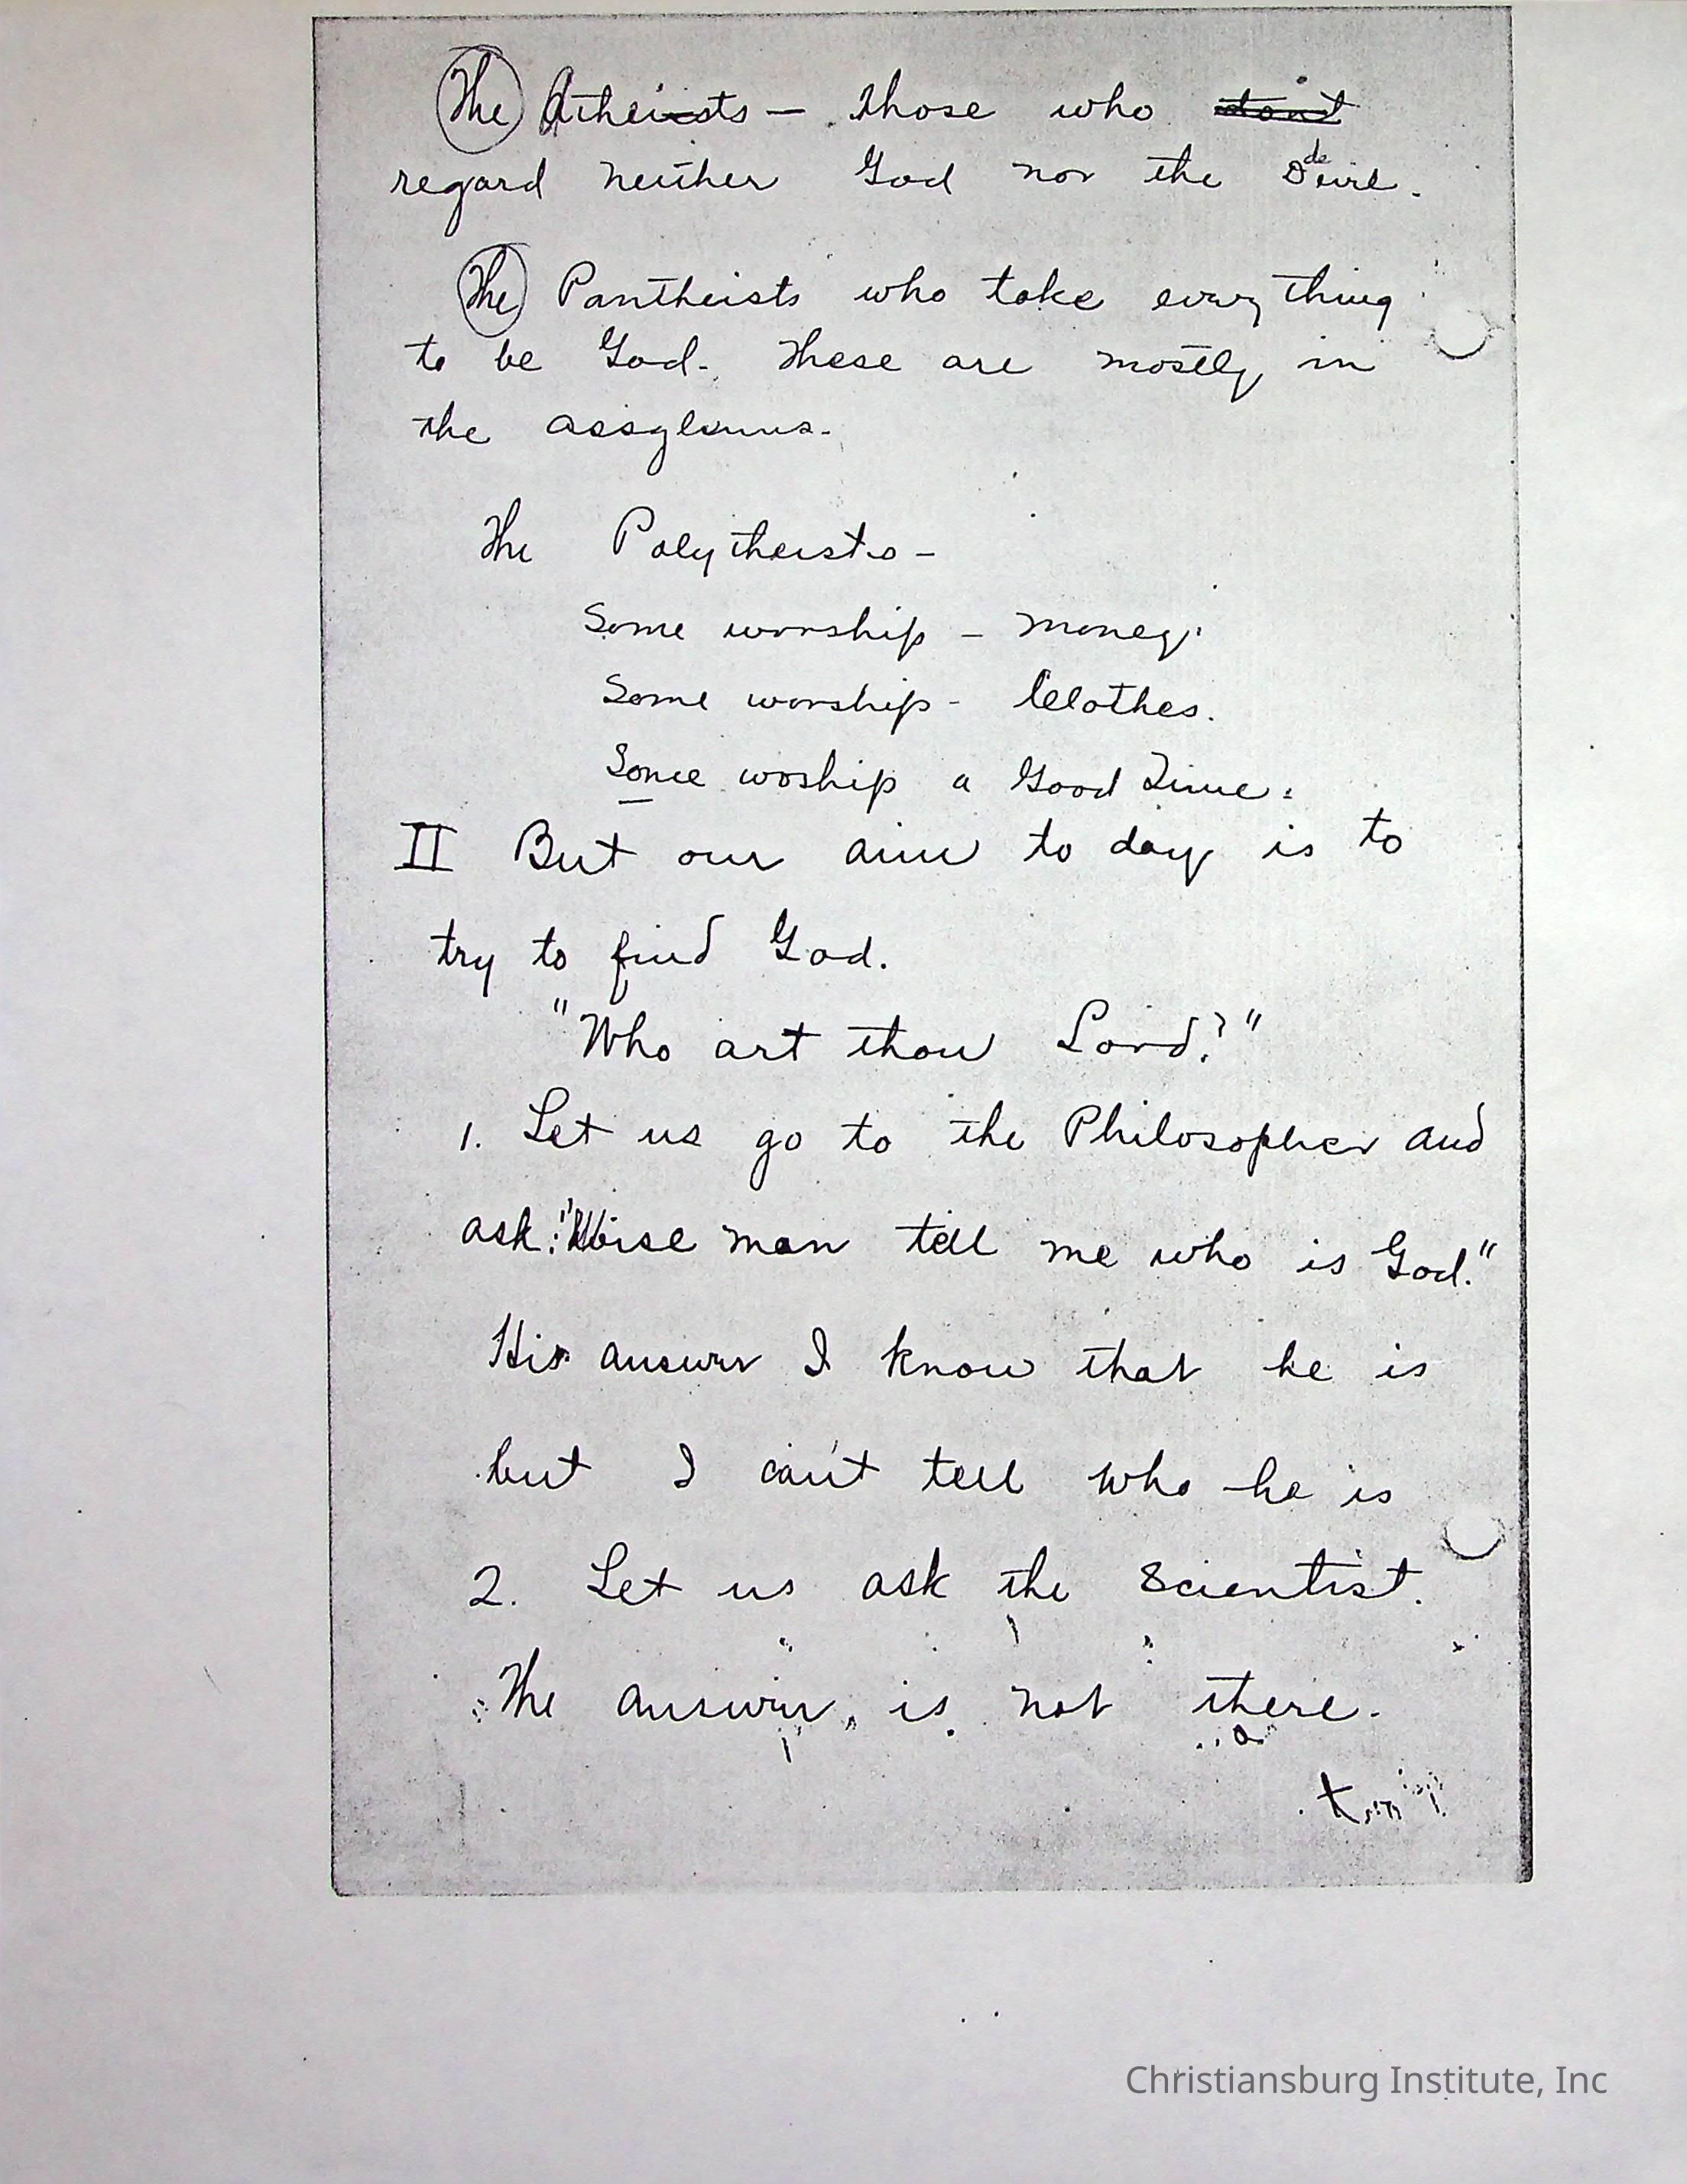 The Atheists — Those who dont
regard neither God nor the Devil.
The Pantheists who take every thing
to be God. These are mostly in
the assylums.
The Polytheists —
Some worship — money.
Some worship - Clothes.
Some woship a Good Time.
II But our aim to day is to
try to find God.
"Who art thou Lord?"
1. Let us go to the Philosopher and
ask: "Wise man tell me who is God."
His answer I know that he is
but I can't tell who he is
2. Let us ask the Scientist.
The answer is not there.
Christiansburg Institute, Inc